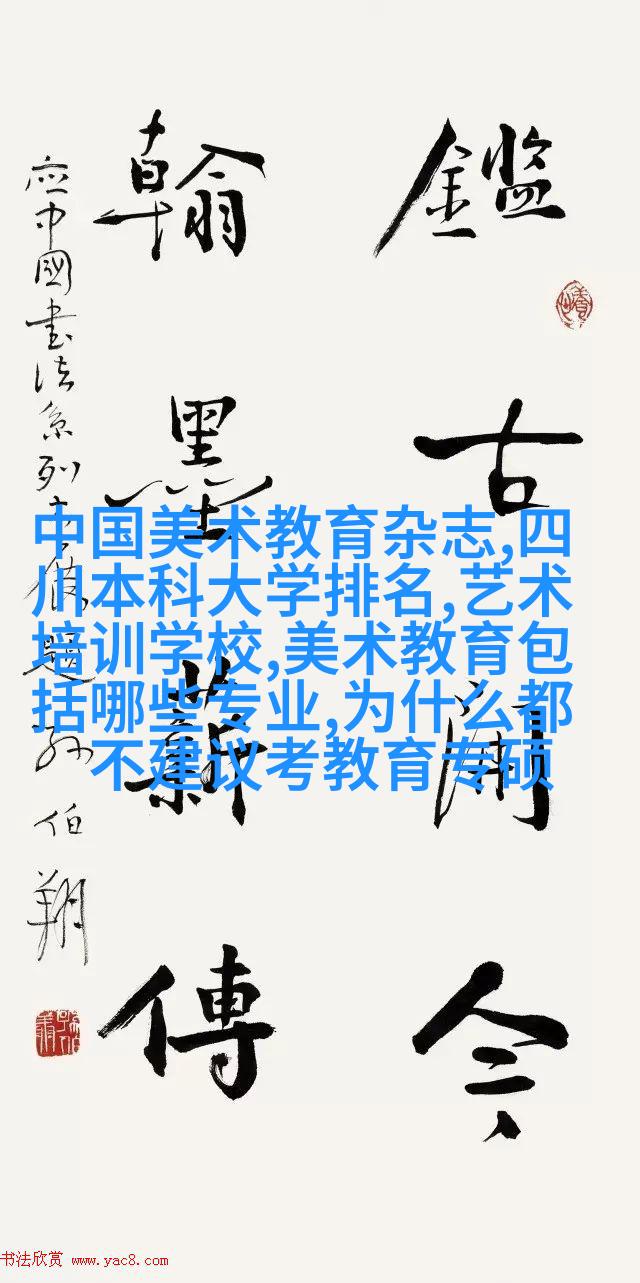 鑑古開今
翰墨薪傳
应中國書法系列展題 孙伯翔
中国美术教育杂志,四
川本科大学排名,艺术
培训学校,美术教育包
括哪些专业,为什么都
不建议考教育专硕
书法欣赏 www.yac8.com